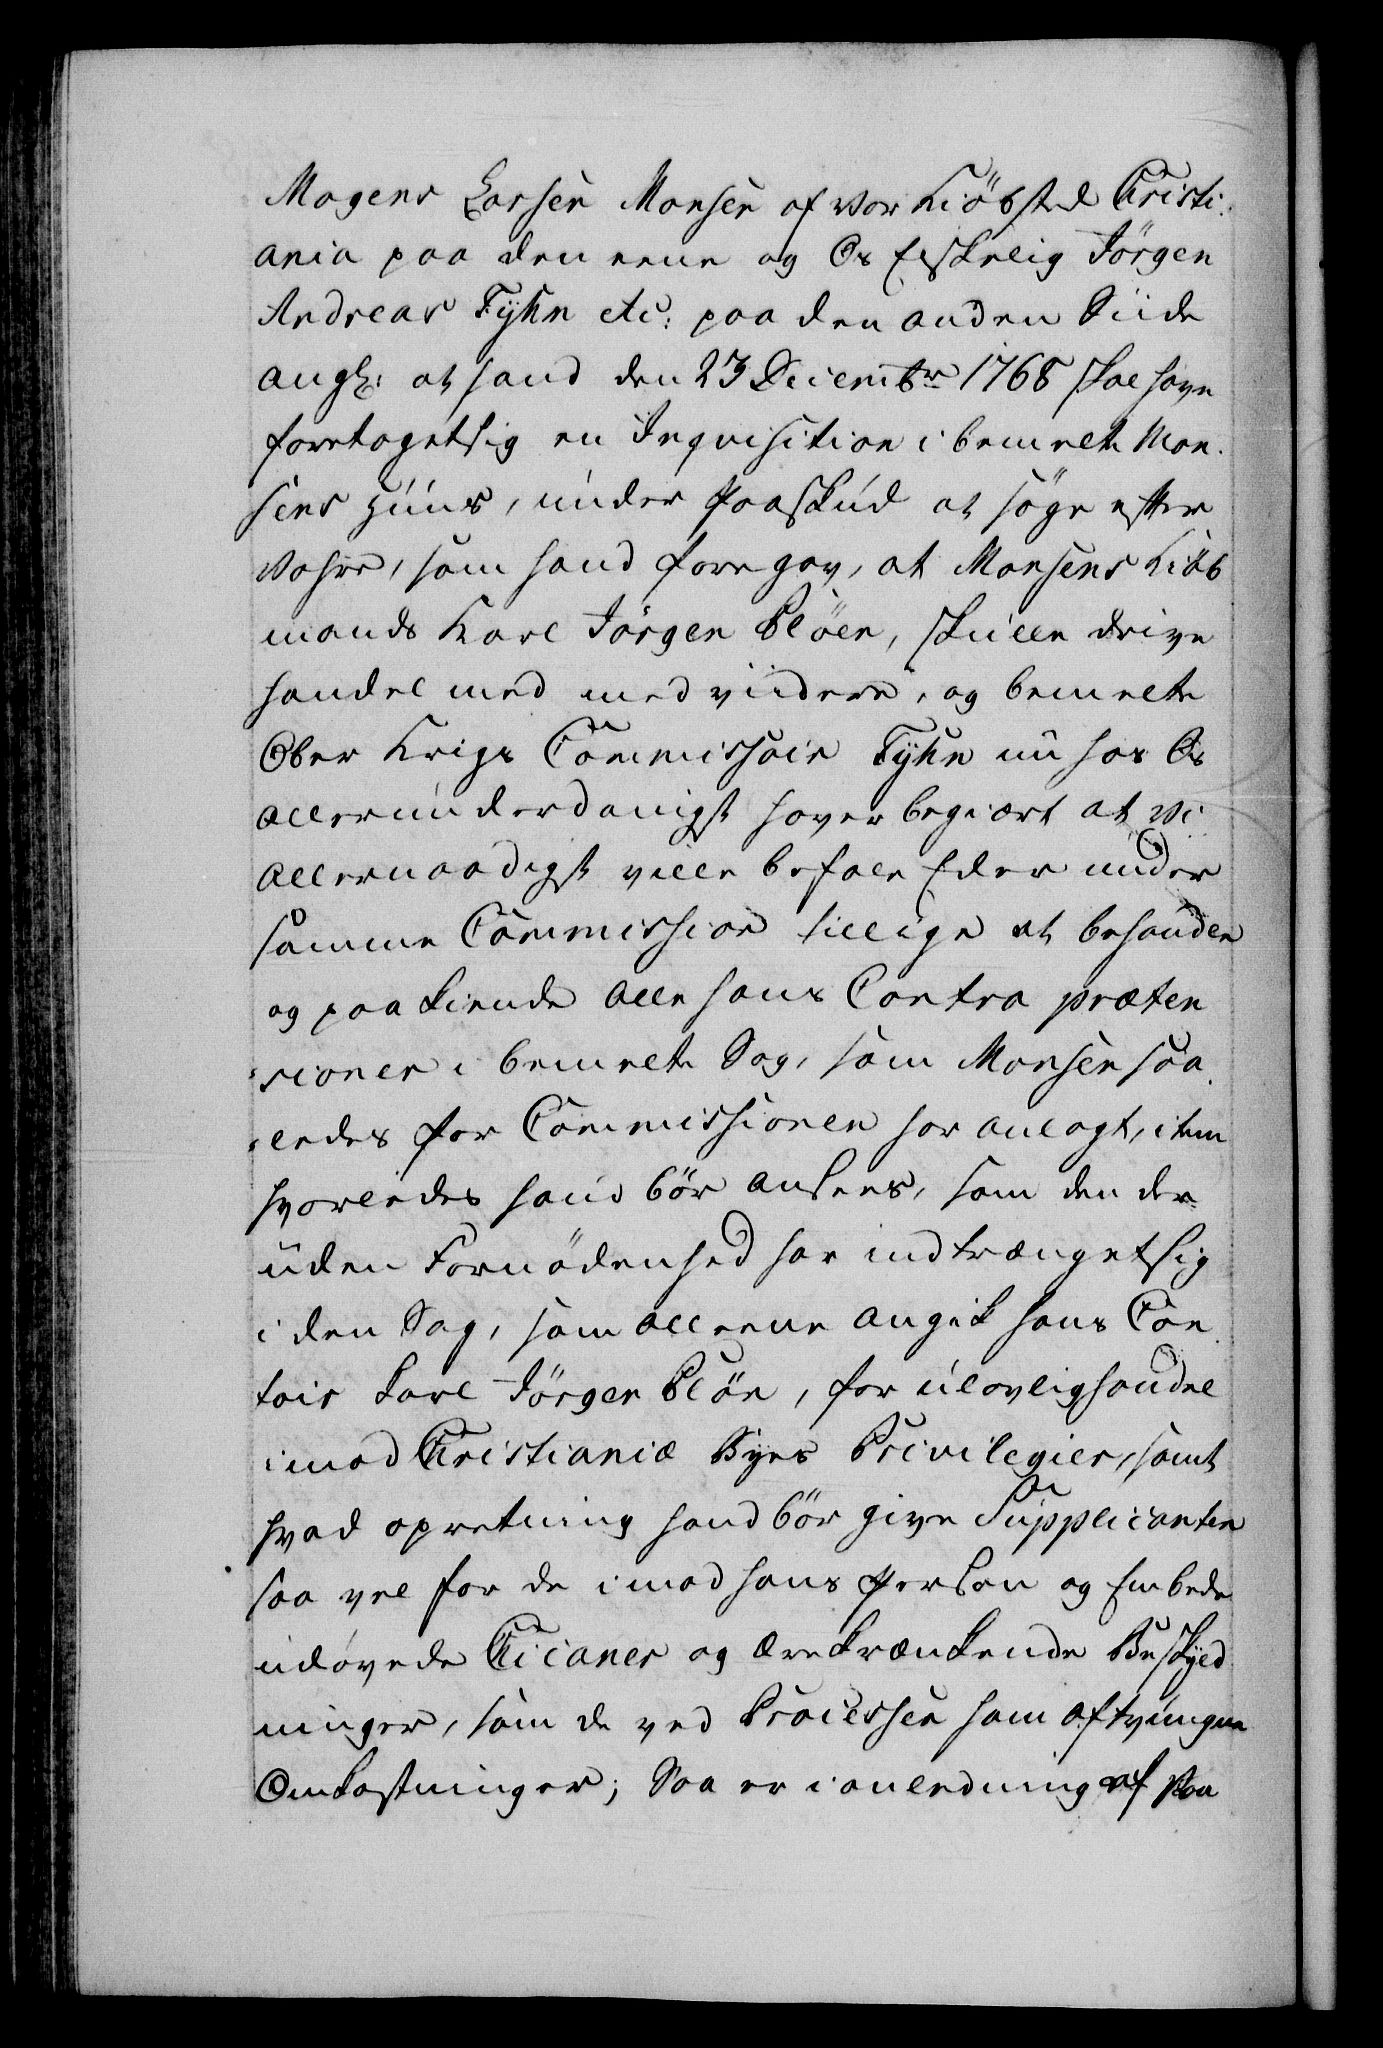 Mogens Larsen Monsen af vor Kiöbsted Christi-
ania paa den eene og Os Elskelig Jörgen
Andreas Fyhn etc: paa den anden Siide
ang: at hand den 23 Decembr 1768 skal have
foretaget sig en Inqvisition i bemelte Mon-
sens Huus, under Paaskud at söge efter
Vahre, som hand foregav, at Monsens Kiöb
mands Karl Jörgen Plöen, skulle drive
handel med med viidere, og bemelte
Ober Krigs Commissair Fyhn nu hos Os
allerunderdanigst haver begiært at vi
allernaadigst ville befale Eder under
samme Commission tillige at behandle
og paakiende alle hans Contra præten
sioner i bemelte Sag, som Monsen saa
ledes for Commissionen har anlagt, item
hvorledes hand bör ansees, som den der
uden Fornödenhed har indtrænget sig
i den Sag, som alleene angik hans Con
toir Karl Jörgen Plön, for ulovlig handel
imod Christianiæ Byes Privilegier, samt
hvad opretning hand bör give Supplicanten
saa vel for de imod hans Person og Embede
udövede Chicaner og ærekrænkende Beskyld
ninger, som de ved Processen ham aftvungne
Omkostninger; Saa er i anledning af for